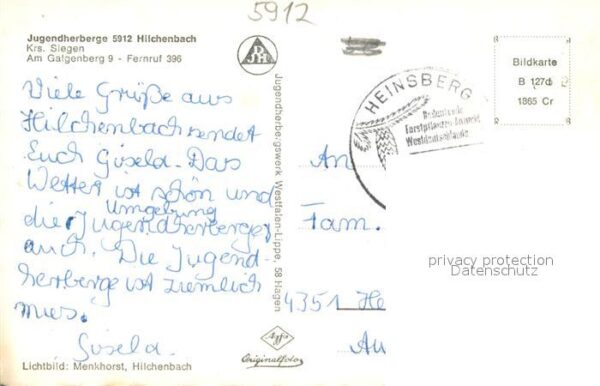 5912
Jugendherberge 5912 Hilchenbach
Krs. Siegen
Am Galgenberg 9 - Fernruf 396
DJH
Viele Grüße aus
Hilchenbach sendet
Euch Gisela. Das
Wetter ist schön und
die Umgebung
Jugendherberge
auch. Die Jugend-
herberge ist ziemlich
mies.
Gisela.
Lichtbild: Menkhorst, Hilchenbach
Jugendherbergswerk Westfalen-Lippe, 58 Hagen
Agfa
Originalfoto
HEINSBERG
Bedeutende
Forstpflanzen-Anzucht
Westdeutschlands
Bildkarte
B 127
1865 Cr
An
Fam.
4351 He
Au
privacy protection
Datenschutz